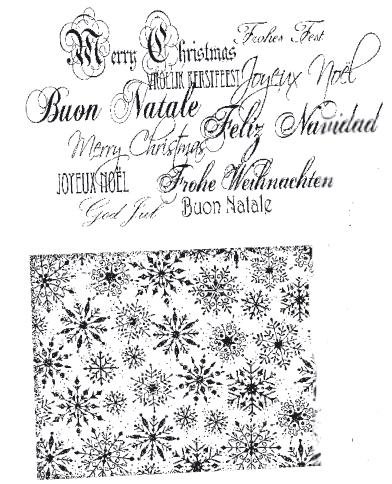 Frohes Fest
Merry Christmas
VROLIJK KERSTFEEST
Joyeux Noël
Buon Natale
Feliz Navidad
Merry Christmas
JOYEUX NOËL
Frohe Weihnachten
God Jul
Buon Natale